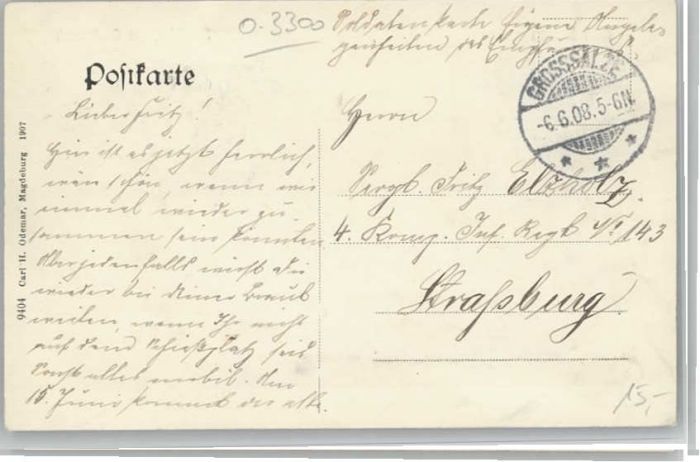 O. 3300
Soldatenkarte Eigene Angele-
genheiten des Empfängers
Postkarte
GROSSSALZE
-6.6.08.5-6N.
Lieber Fritz!
Hier ist es jetzt herrlich,
wäre schön, wenn wir
einmal wieder zu-
sammen sein könnten
Aber jedenfalls wirst Du
wieder bei Deiner Braut
weilen, wenn Ihr nicht
auf dem Schießplatz seid
Sonst alles mobil. Am
15. Juni kommt der alte.
Herrn
Sergt. Fritz Elzholz.
4. Komp. Inf. Regt. No. 143
Straßburg
9404 Carl H. Odemar, Magdeburg 1907
15,-